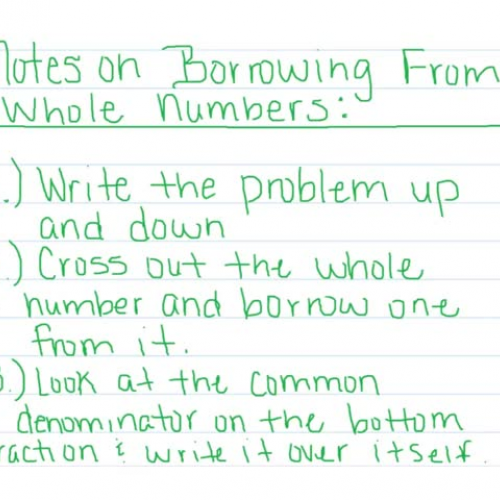 Notes on Borrowing From
Whole Numbers:
.) Write the problem up
and down
.) Cross out the whole
number and borrow one
from it.
3.) Look at the common
denominator on the bottom
raction & write it over itself.